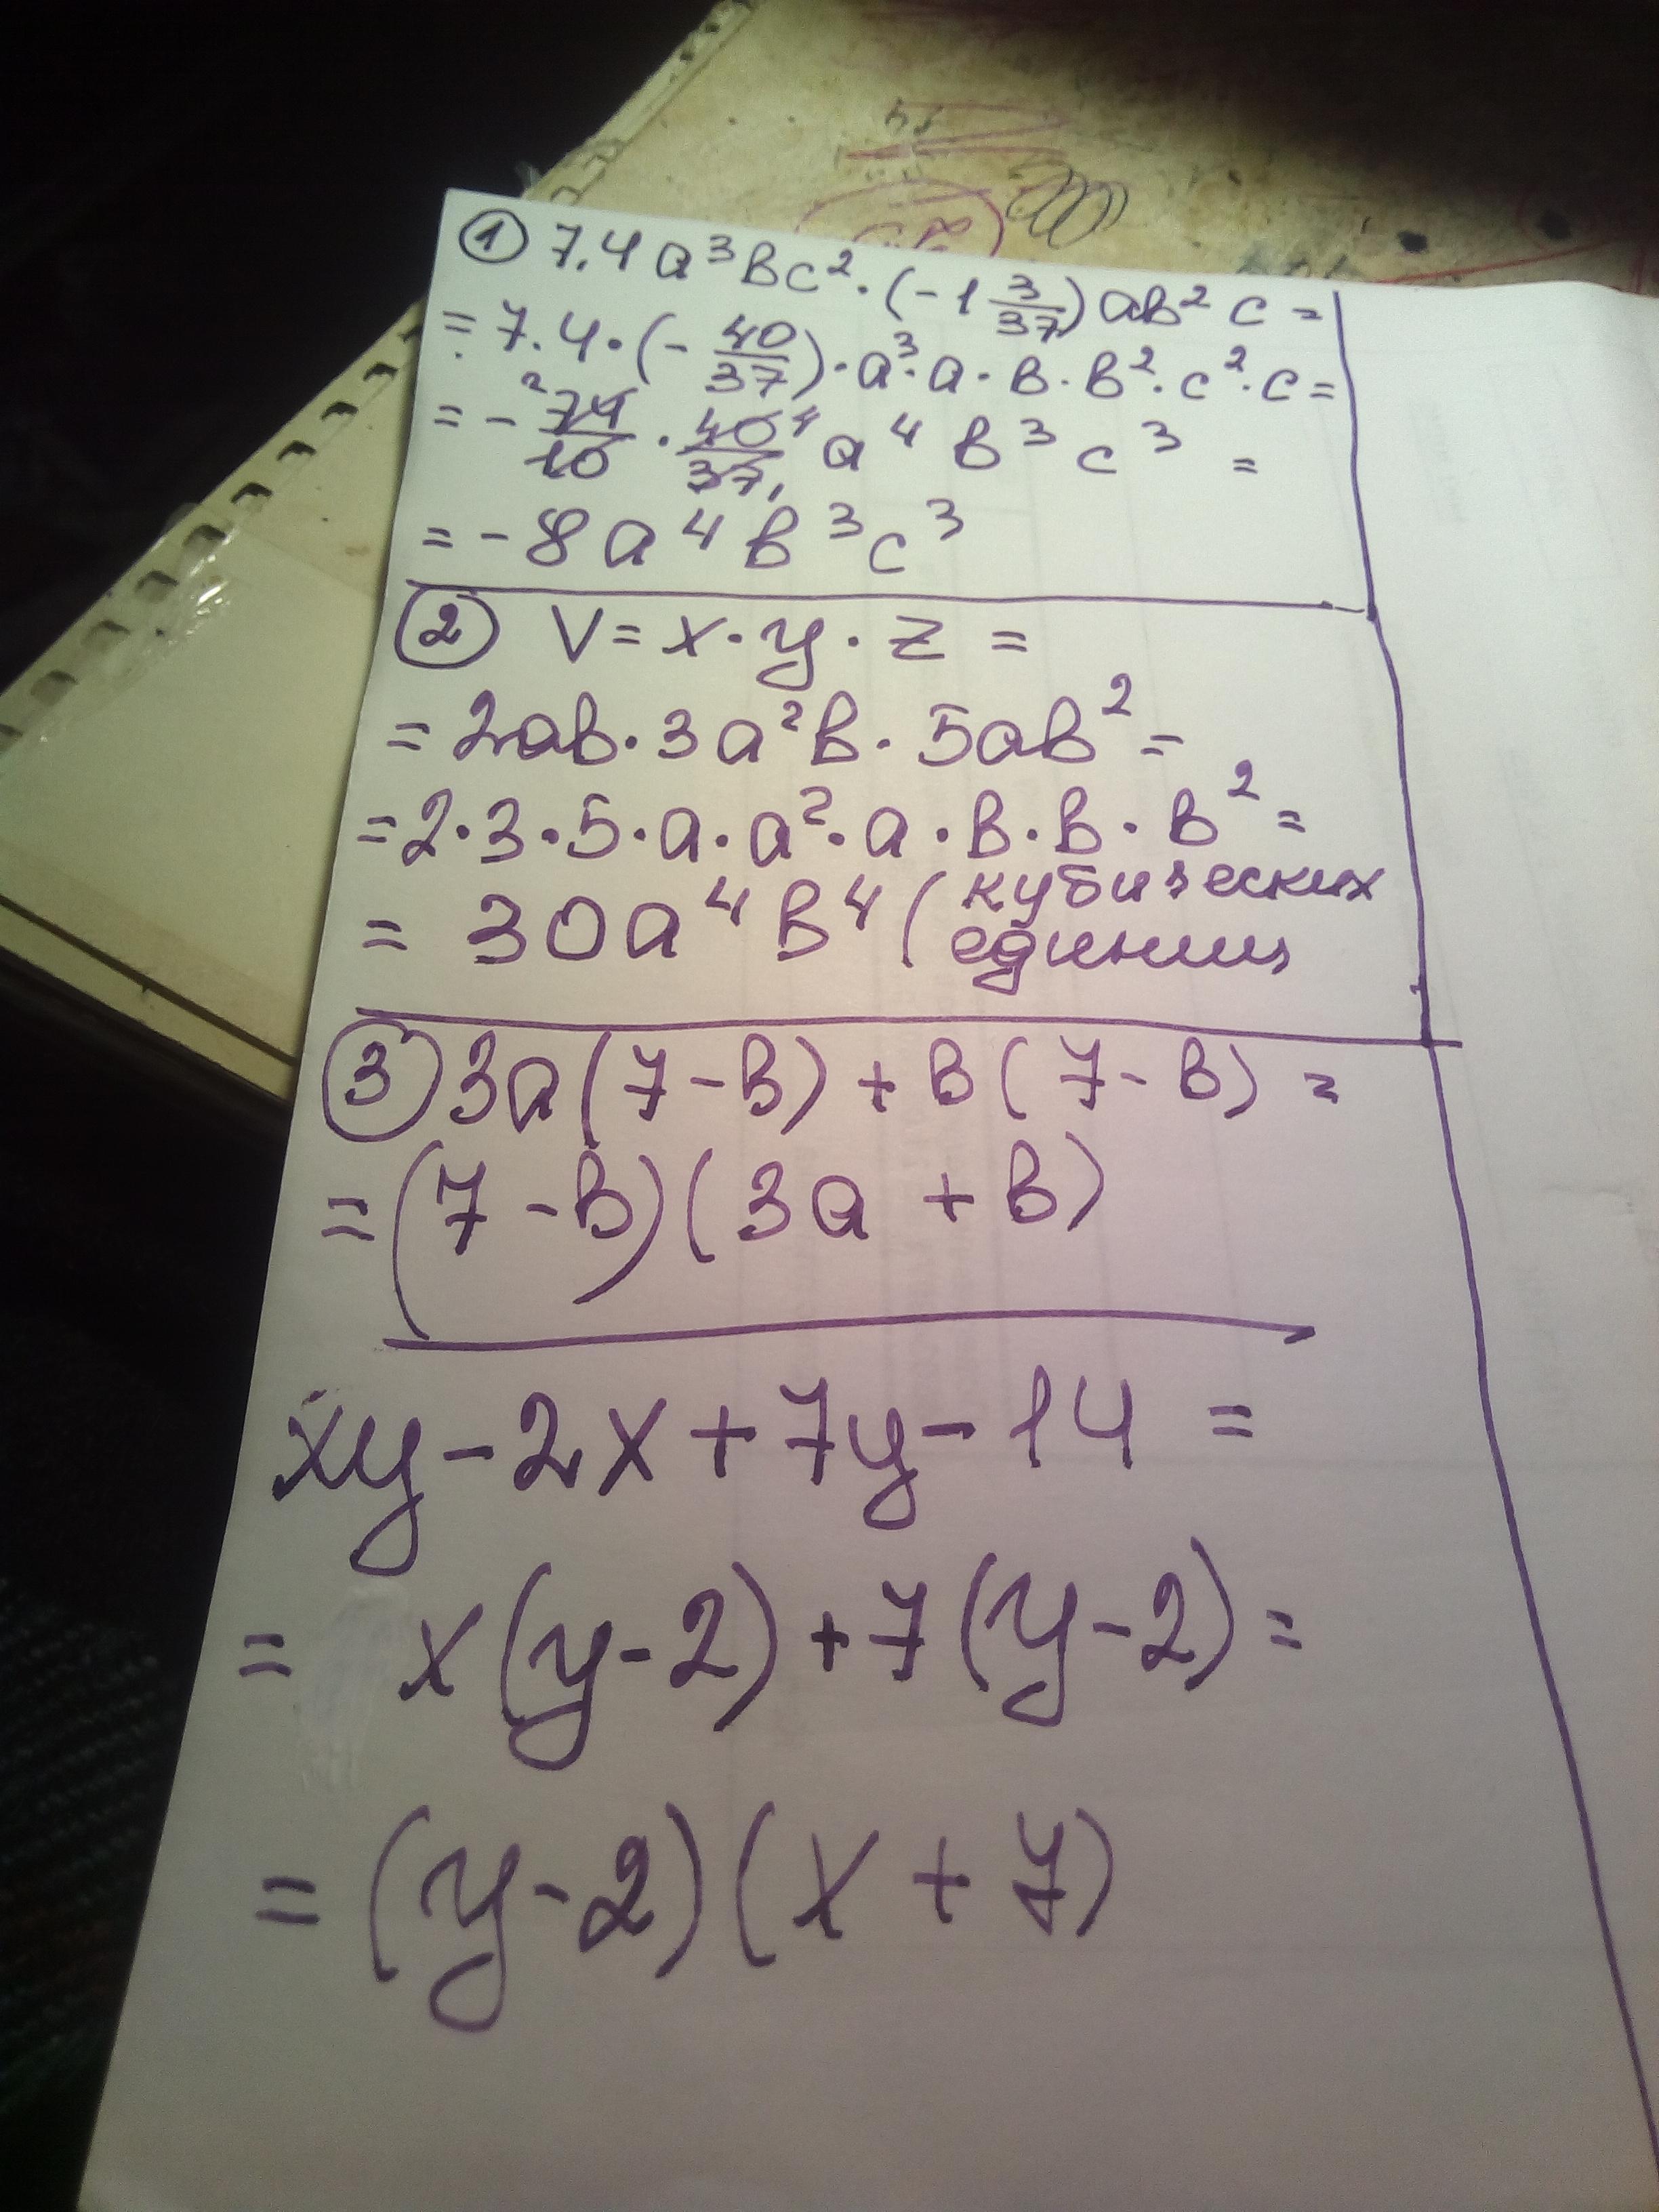 ① 7.4a³вc²·(-1 3/37)ав²c =
= 7.4·(-40/37)·a³·a·в·в²·c²·c =
= - ²74/10 · 40⁴/37₁ a⁴ в³ c³ =
= -8a⁴в³c³
② V = x·y·z =
= 2ав·3a²в·5ав² =
= 2·3·5·a·a²·a·в·в·в² =
= 30a⁴в⁴ (кубических
единиц
③ 3a(7-в)+в(7-в) =
= (7-в)(3a+в)
xy-2x+7y-14 =
= x(y-2)+7(y-2) =
= (y-2)(x+7)